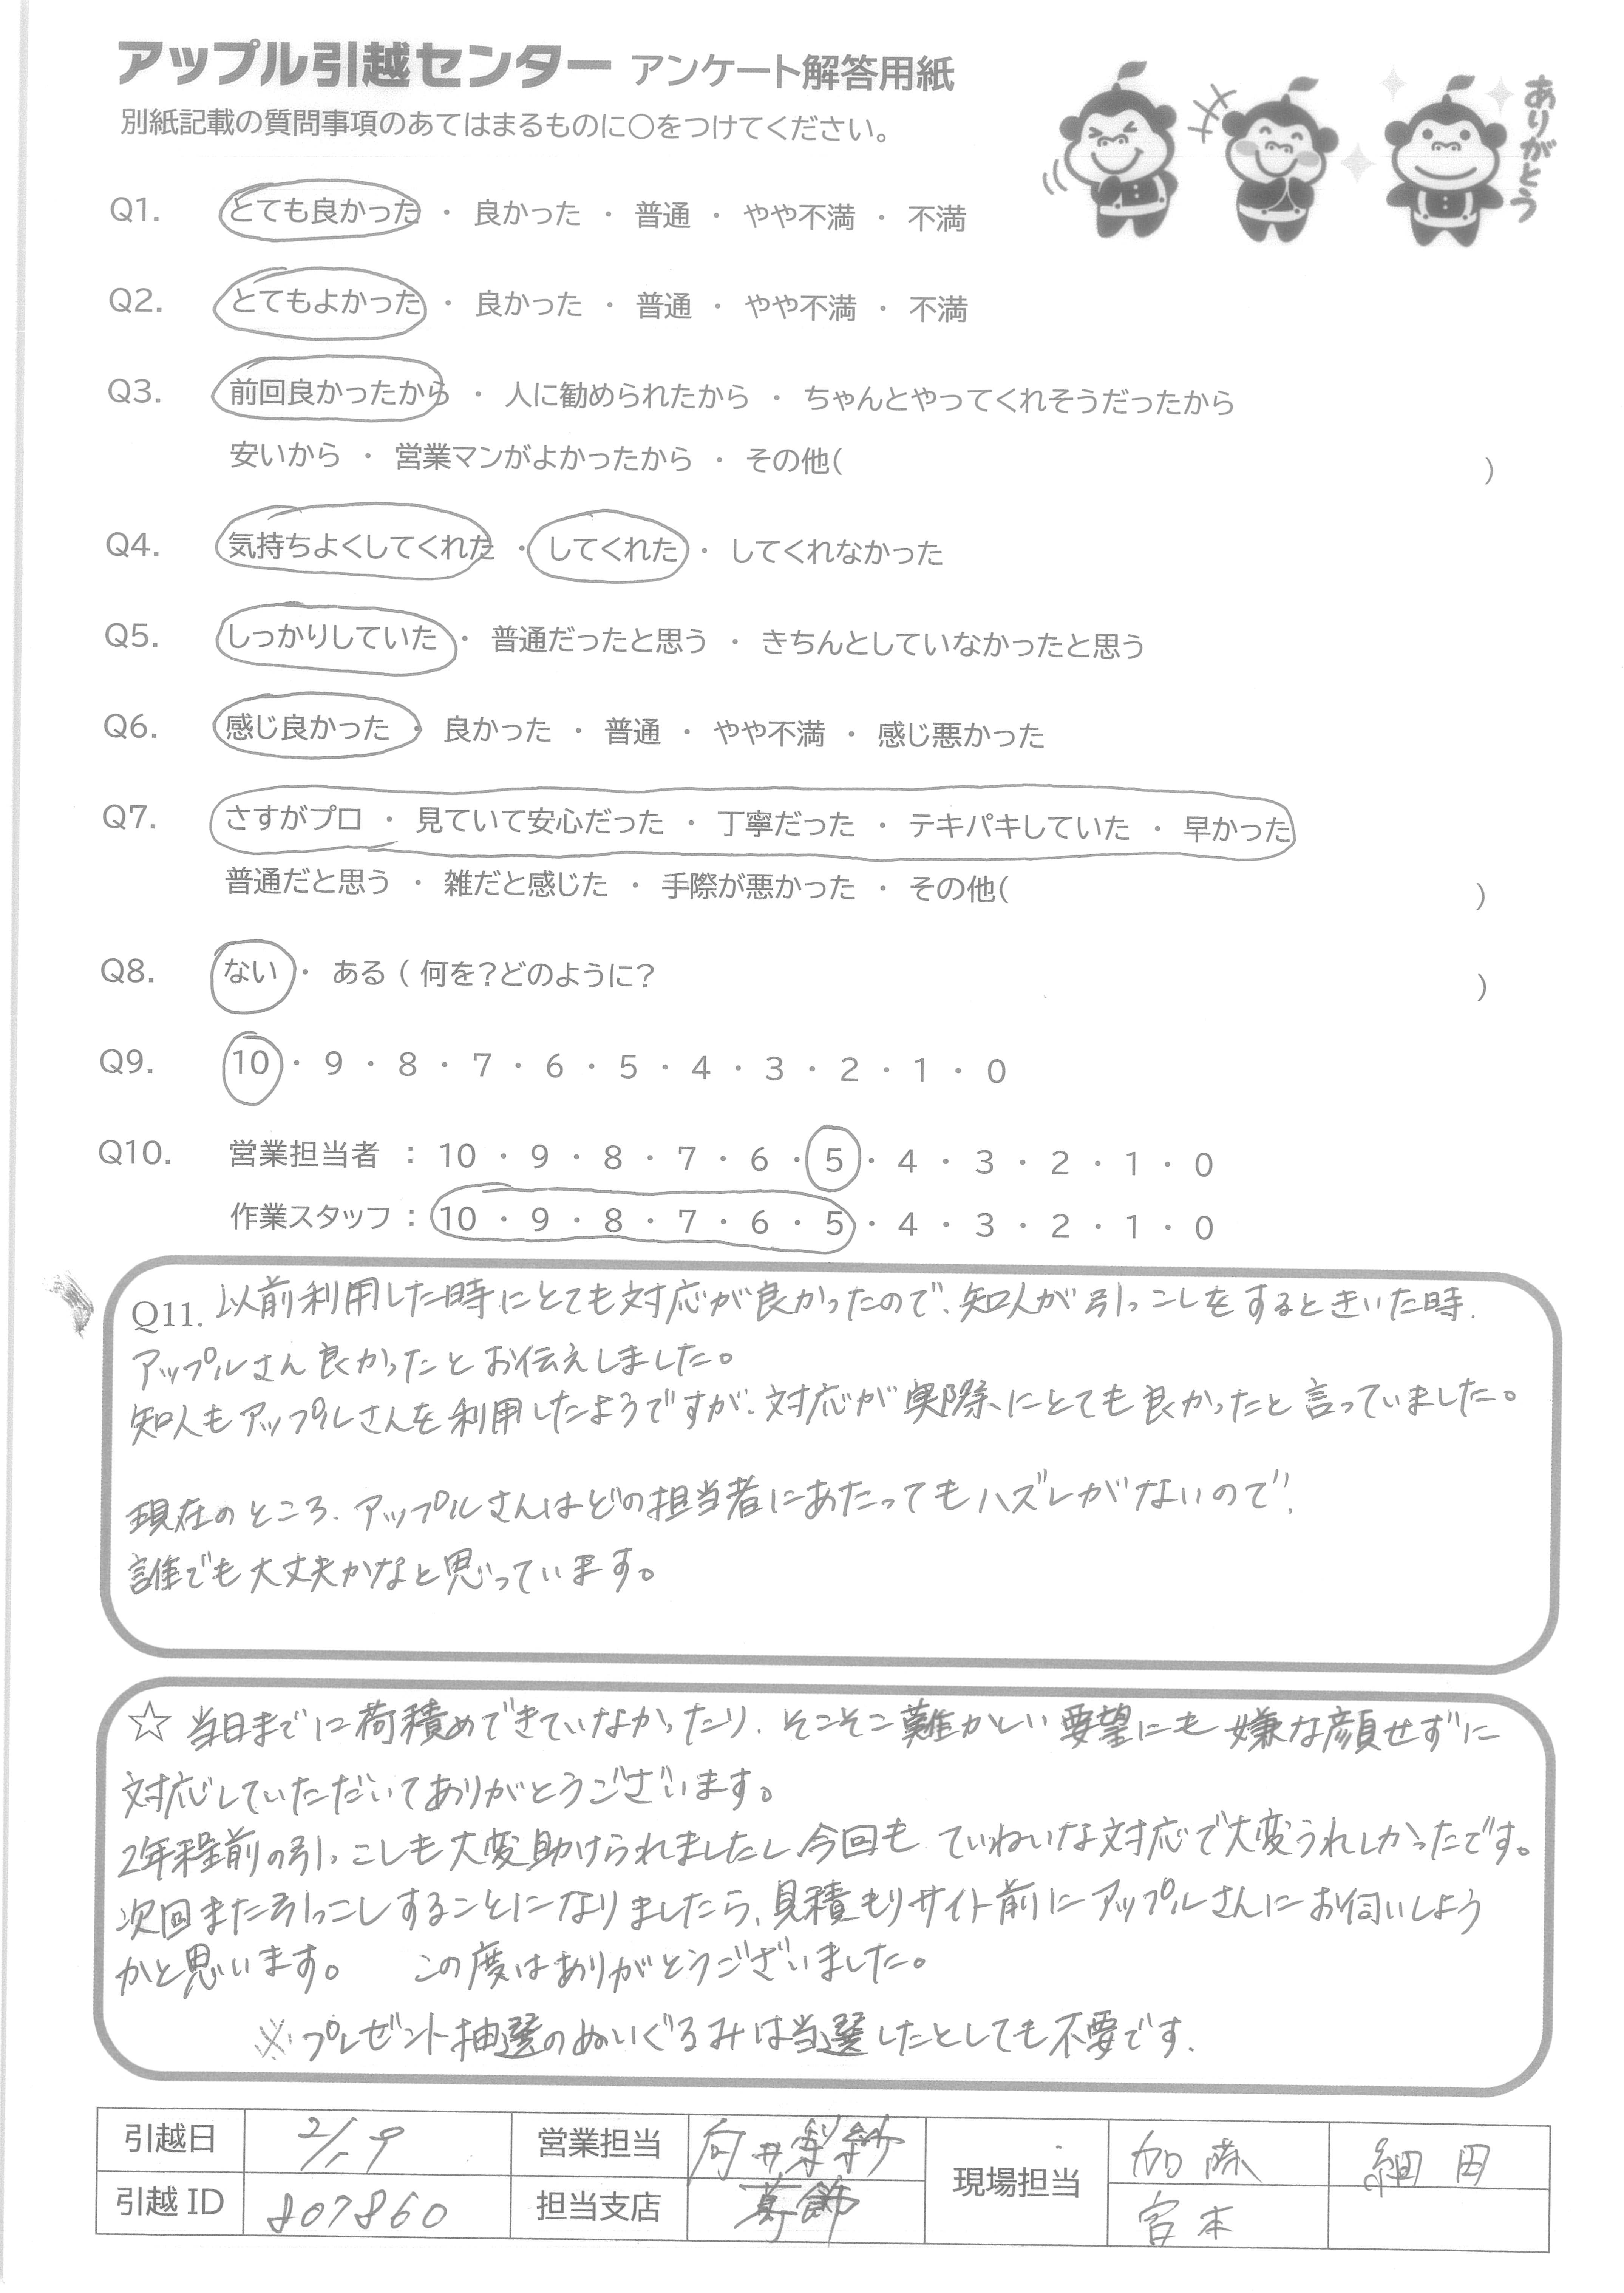 アップル引越センター アンケート解答用紙
別紙記載の質問事項のあてはまるものに○をつけてください。
ありがとう
Q1. とても良かった ・ 良かった ・ 普通 ・ やや不満 ・ 不満
Q2. とてもよかった ・ 良かった ・ 普通 ・ やや不満 ・ 不満
Q3. 前回良かったから ・ 人に勧められたから ・ ちゃんとやってくれそうだったから
安いから ・ 営業マンがよかったから ・ その他( )
Q4. 気持ちよくしてくれた ・ してくれた ・ してくれなかった
Q5. しっかりしていた ・ 普通だったと思う ・ きちんとしていなかったと思う
Q6. 感じ良かった ・ 良かった ・ 普通 ・ やや不満 ・ 感じ悪かった
Q7. さすがプロ ・ 見ていて安心だった ・ 丁寧だった ・ テキパキしていた ・ 早かった
普通だと思う ・ 雑だと感じた ・ 手際が悪かった ・ その他( )
Q8. ない ・ ある ( 何を?どのように? )
Q9. 10 ・ 9 ・ 8 ・ 7 ・ 6 ・ 5 ・ 4 ・ 3 ・ 2 ・ 1 ・ 0
Q10. 営業担当者 : 10 ・ 9 ・ 8 ・ 7 ・ 6 ・ 5 ・ 4 ・ 3 ・ 2 ・ 1 ・ 0
作業スタッフ : 10 ・ 9 ・ 8 ・ 7 ・ 6 ・ 5 ・ 4 ・ 3 ・ 2 ・ 1 ・ 0
Q11. 以前利用した時にとても対応が良かったので、知人が引っこしをするときいた時、
アップルさん良かったとお伝えしました。
知人もアップルさんを利用したようですが、対応が実際にとても良かったと言っていました。
現在のところ、アップルさんはどの担当者にあたってもハズレがないので、
誰でも大丈夫かなと思っています。
☆ 当日までに荷積めできていなかったり、そこそこ難かしい要望にも嫌な顔せずに
対応していただいてありがとうございます。
2年程前の引っこしも大変助けられましたし、今回もていねいな対応で大変うれしかったです。
次回また引っこしすることになりましたら、見積もりサイト前にアップルさんにお伺いしよう
かと思います。 この度はありがとうございました。
※プレゼント抽選のぬいぐるみは当選したとしても不要です。
引越日 営業担当 向井梨紗 現場担当 加藤 細田
引越ID 807860 担当支店 葛飾 宮本